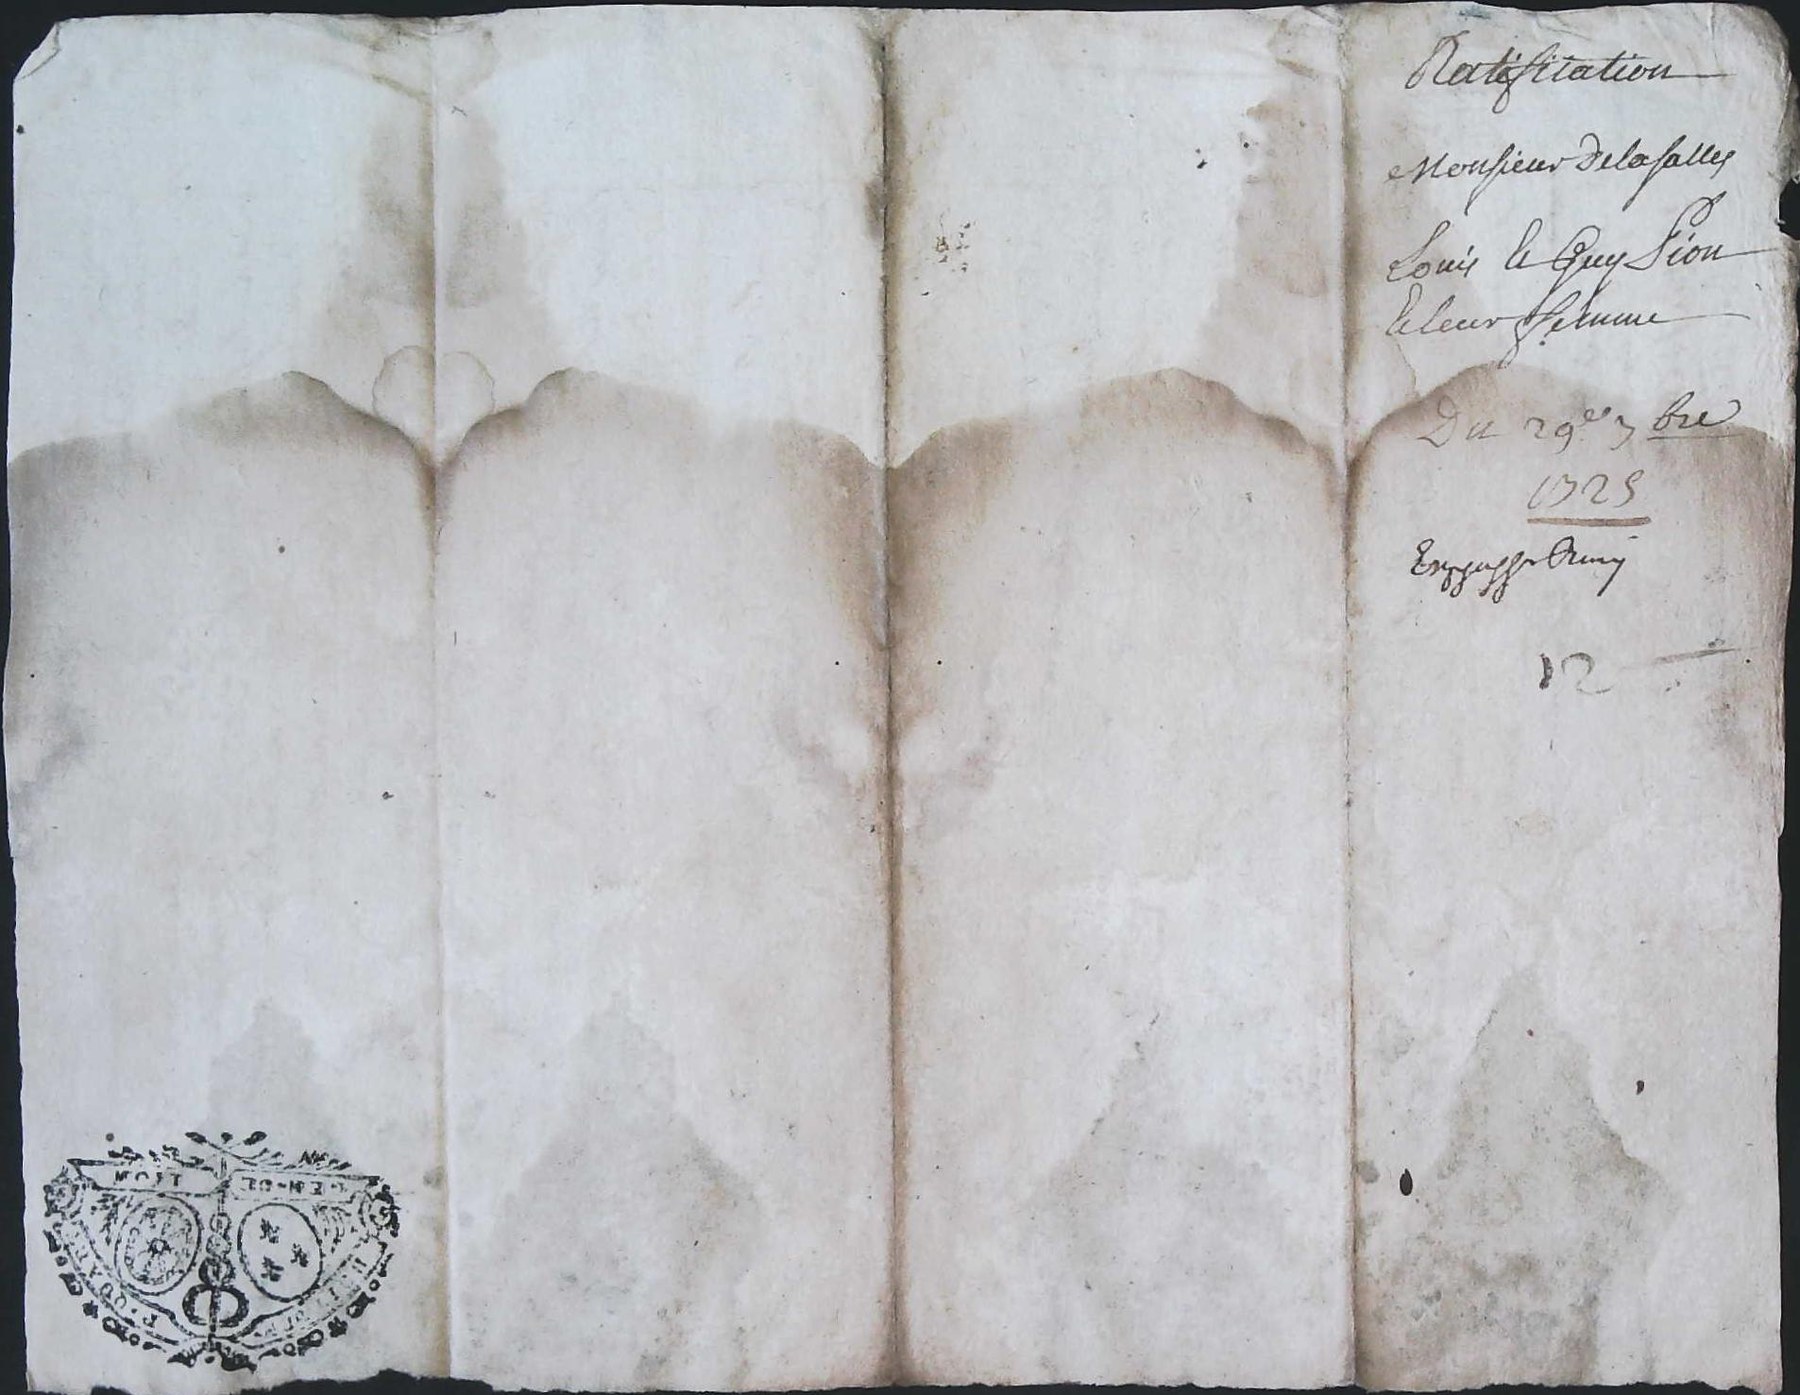 Ratification
Monsieur Delasalles
Louis le Guy Sion
et leur femme
Du 29e 7bre
1725
12
GEN-DE LION